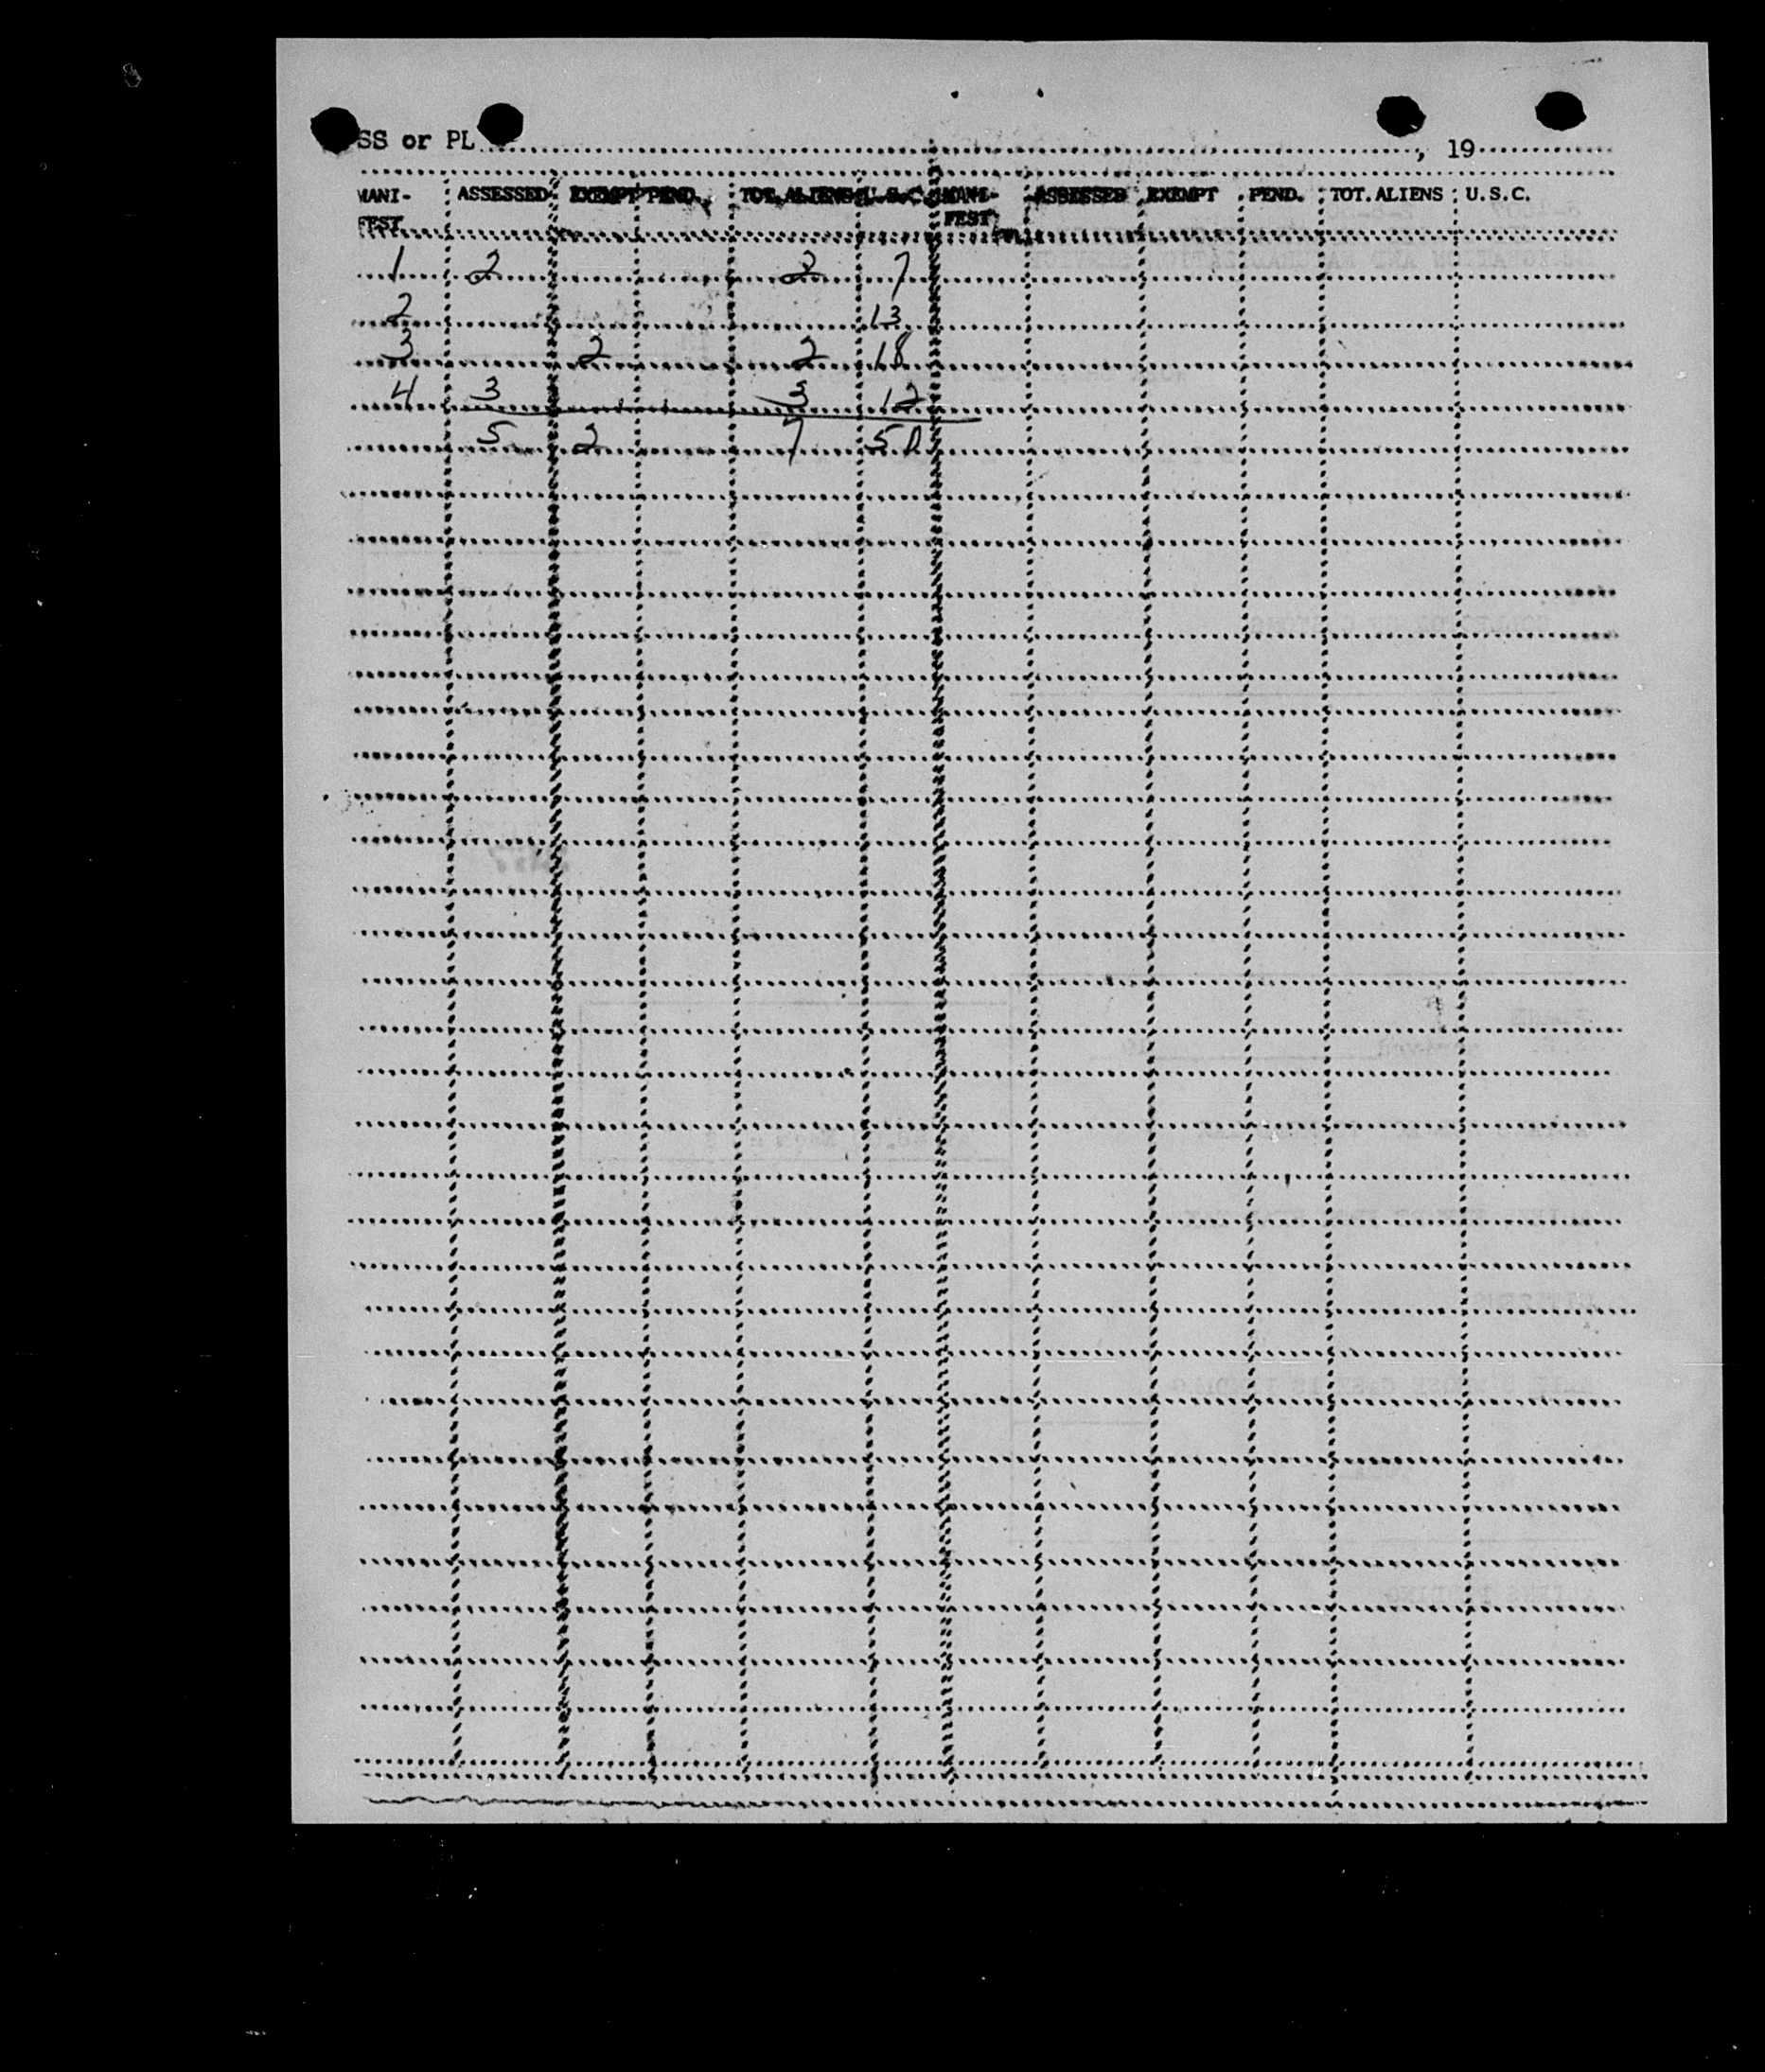 SS or PL , 19
MANI- ASSESSED EXEMPT PEND. TOT. ALIENS U.S.C. MANI- ASSESSED EXEMPT PEND. TOT. ALIENS U.S.C.
FEST FEST
1 2 2 7
2 13
3 2 2 18
4 3 3 12
5 2 7 50